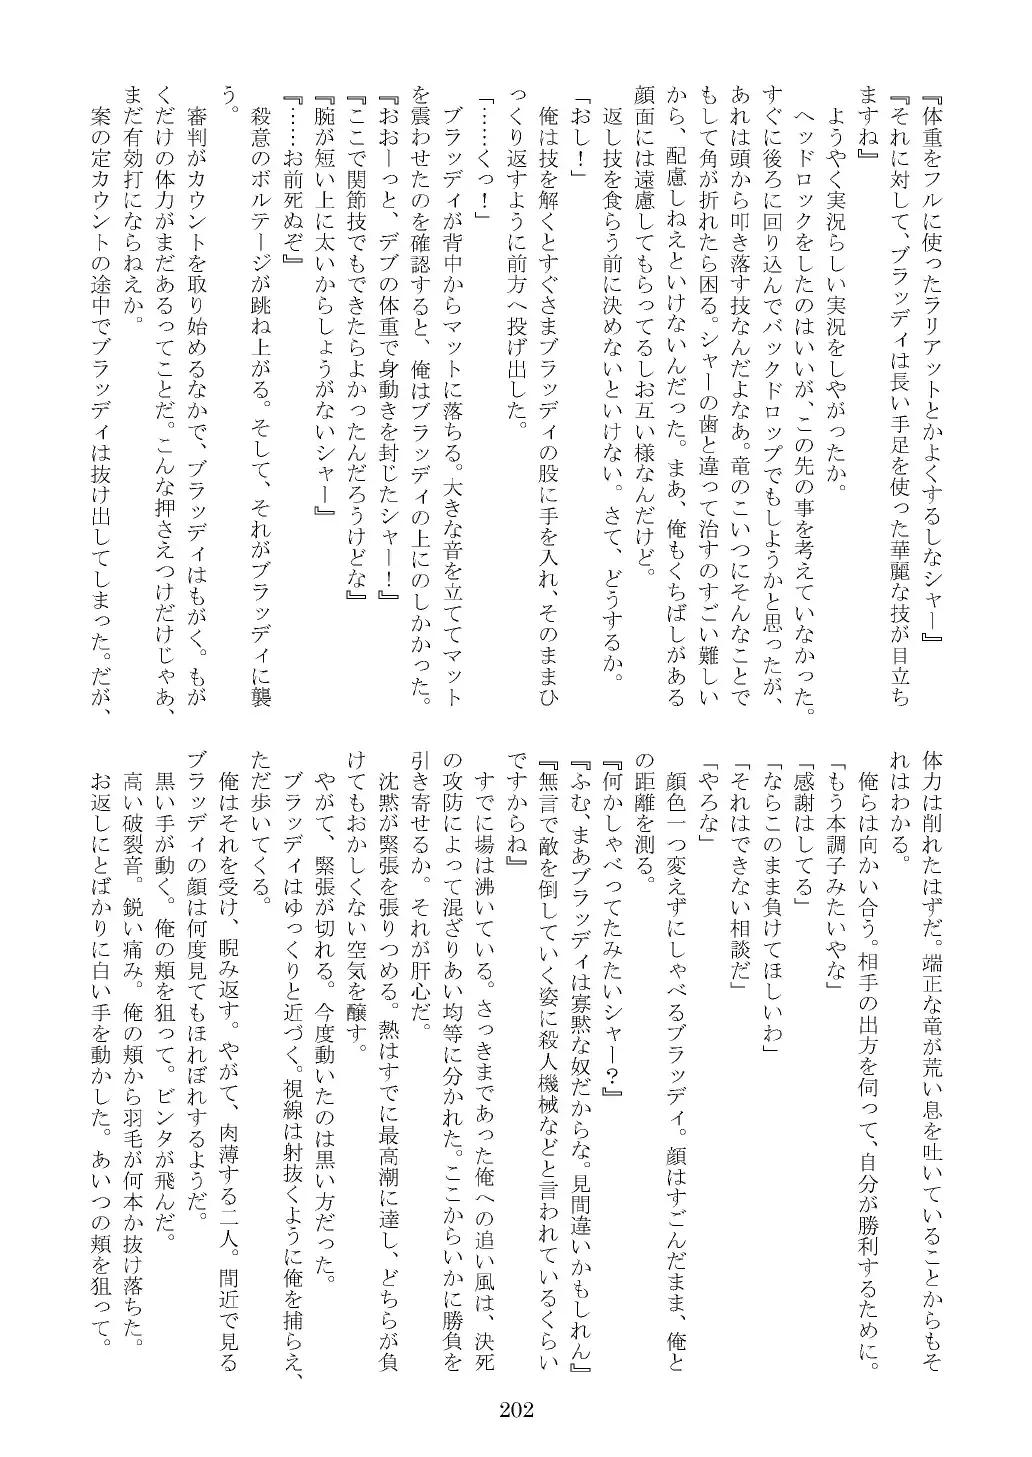 『体重をフルに使ったラリアットとかよくするしなシャー』
『それに対して、ブラッディは長い手足を使った華麗な技が目立ち
ますね』
　ようやく実況らしい実況をしやがったか。
　ヘッドロックをしたのはいいが、この先の事を考えていなかった。
すぐに後ろに回り込んでバックドロップでもしようかと思ったが、
あれは頭から叩き落す技なんだよなあ。竜のこいつにそんなことで
もして角が折れたら困る。シャーの歯と違って治すのすごい難しい
から、配慮しねえといけないんだった。まあ、俺もくちばしがある
顔面には遠慮してもらってるしお互い様なんだけど。
　返し技を食らう前に決めないといけない。さて、どうするか。
「おし！」
　俺は技を解くとすぐさまブラッディの股に手を入れ、そのままひ
っくり返すように前方へ投げ出した。
「……くっ！」
　ブラッディが背中からマットに落ちる。大きな音を立ててマット
を震わせたのを確認すると、俺はブラッディの上にのしかかった。
『おおーっと、デブの体重で身動きを封じたシャー！』
『ここで関節技でもできたらよかったんだろうけどな』
『腕が短い上に太いからしょうがないシャー』
『……お前死ぬぞ』
　殺意のボルテージが跳ね上がる。そして、それがブラッディに襲
う。
　審判がカウントを取り始めるなかで、ブラッディはもがく。もが
くだけの体力がまだあるってことだ。こんな押さえつけだけじゃあ、
まだ有効打にならねえか。
　案の定カウントの途中でブラッディは抜け出してしまった。だが、
体力は削れたはずだ。端正な竜が荒い息を吐いていることからもそ
れはわかる。
　俺らは向かい合う。相手の出方を伺って、自分が勝利するために。
「もう本調子みたいやな」
「感謝はしてる」
「ならこのまま負けてほしいわ」
「それはできない相談だ」
「やろな」
　顔色一つ変えずにしゃべるブラッディ。顔はすごんだまま、俺と
の距離を測る。
『何かしゃべってたみたいシャー？』
『ふむ、まあブラッディは寡黙な奴だからな。見間違いかもしれん』
『無言で敵を倒していく姿に殺人機械などと言われているくらい
ですからね』
　すでに場は沸いている。さっきまであった俺への追い風は、決死
の攻防によって混ざりあい均等に分かれた。ここからいかに勝負を
引き寄せるか。それが肝心だ。
　沈黙が緊張を張りつめる。熱はすでに最高潮に達し、どちらが負
けてもおかしくない空気を醸す。
　やがて、緊張が切れる。今度動いたのは黒い方だった。
　ブラッディはゆっくりと近づく。視線は射抜くように俺を捕らえ、
ただ歩いてくる。
　俺はそれを受け、睨み返す。やがて、肉薄する二人。間近で見る
ブラッディの顔は何度見てもほれぼれするようだ。
　黒い手が動く。俺の頬を狙って。ビンタが飛んだ。
　高い破裂音。鋭い痛み。俺の頬から羽毛が何本か抜け落ちた。
　お返しにとばかりに白い手を動かした。あいつの頬を狙って。
202